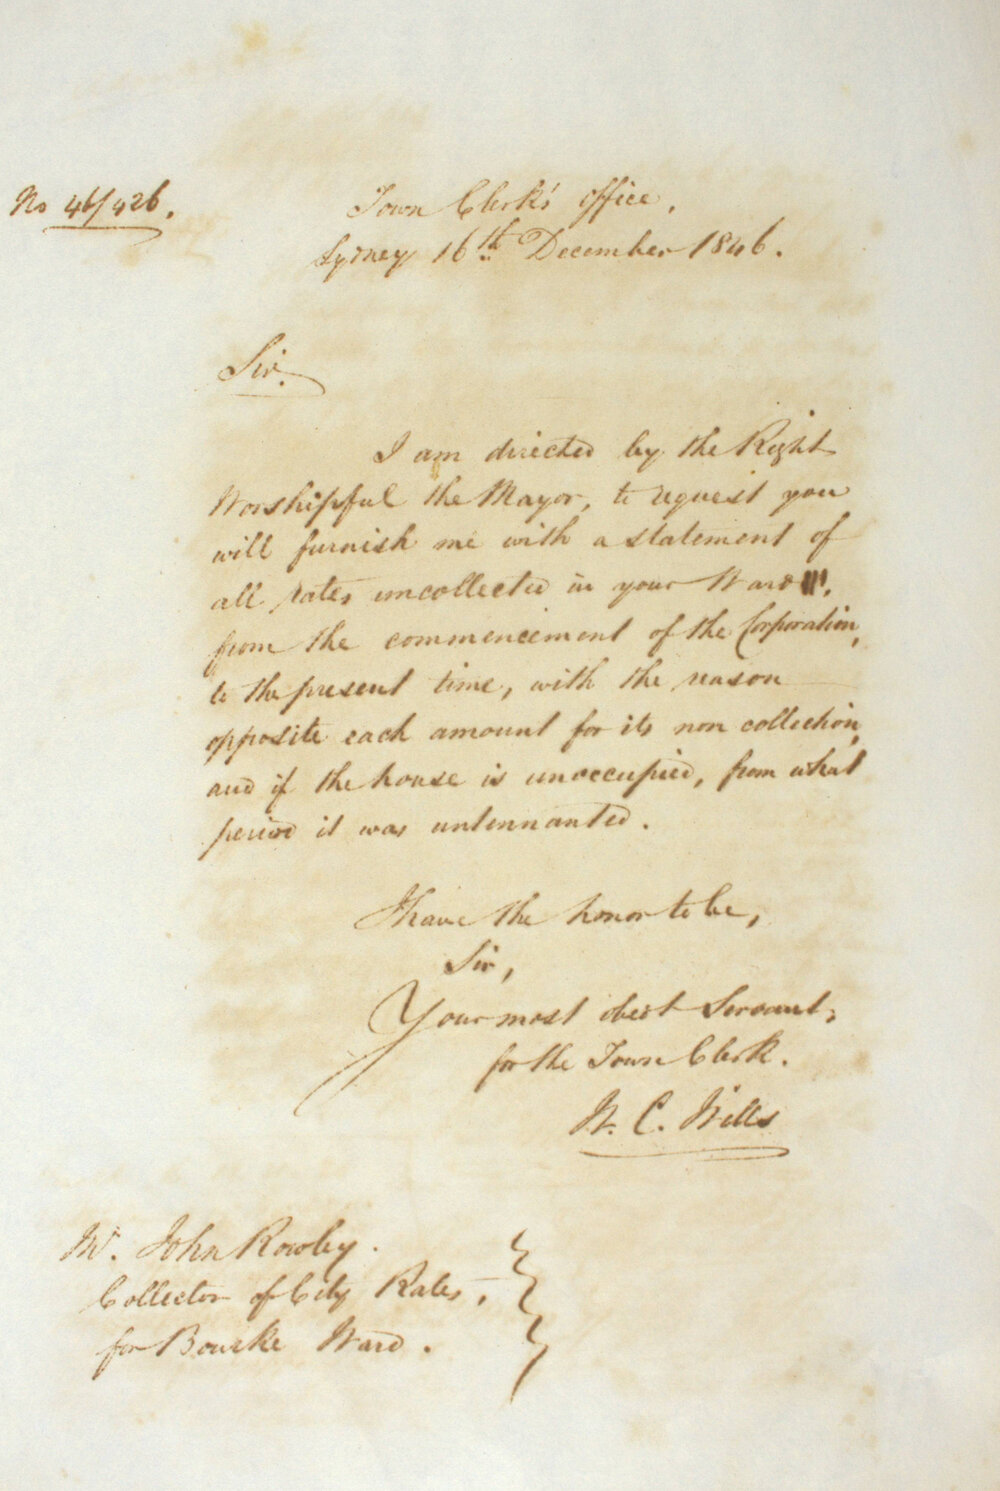 No 46/426.
Town Clerk's Office,
Sydney 16th December 1846.
Sir.
I am directed by the Right
Worshipful the Mayor, to request you
will furnish me with a statement of
all rates uncollected in your Ward
from the commencement of the Corporation,
to the present time, with the reason
opposite each amount for its non collection,
and if the house is unoccupied, from what
period it was untennanted.
I have the honor to be,
Sir,
Your most obedt Servant,
for the Town Clerk.
W. C. Wills
Mr. John Rowley.
Collector of City Rates,
for Bourke Ward.